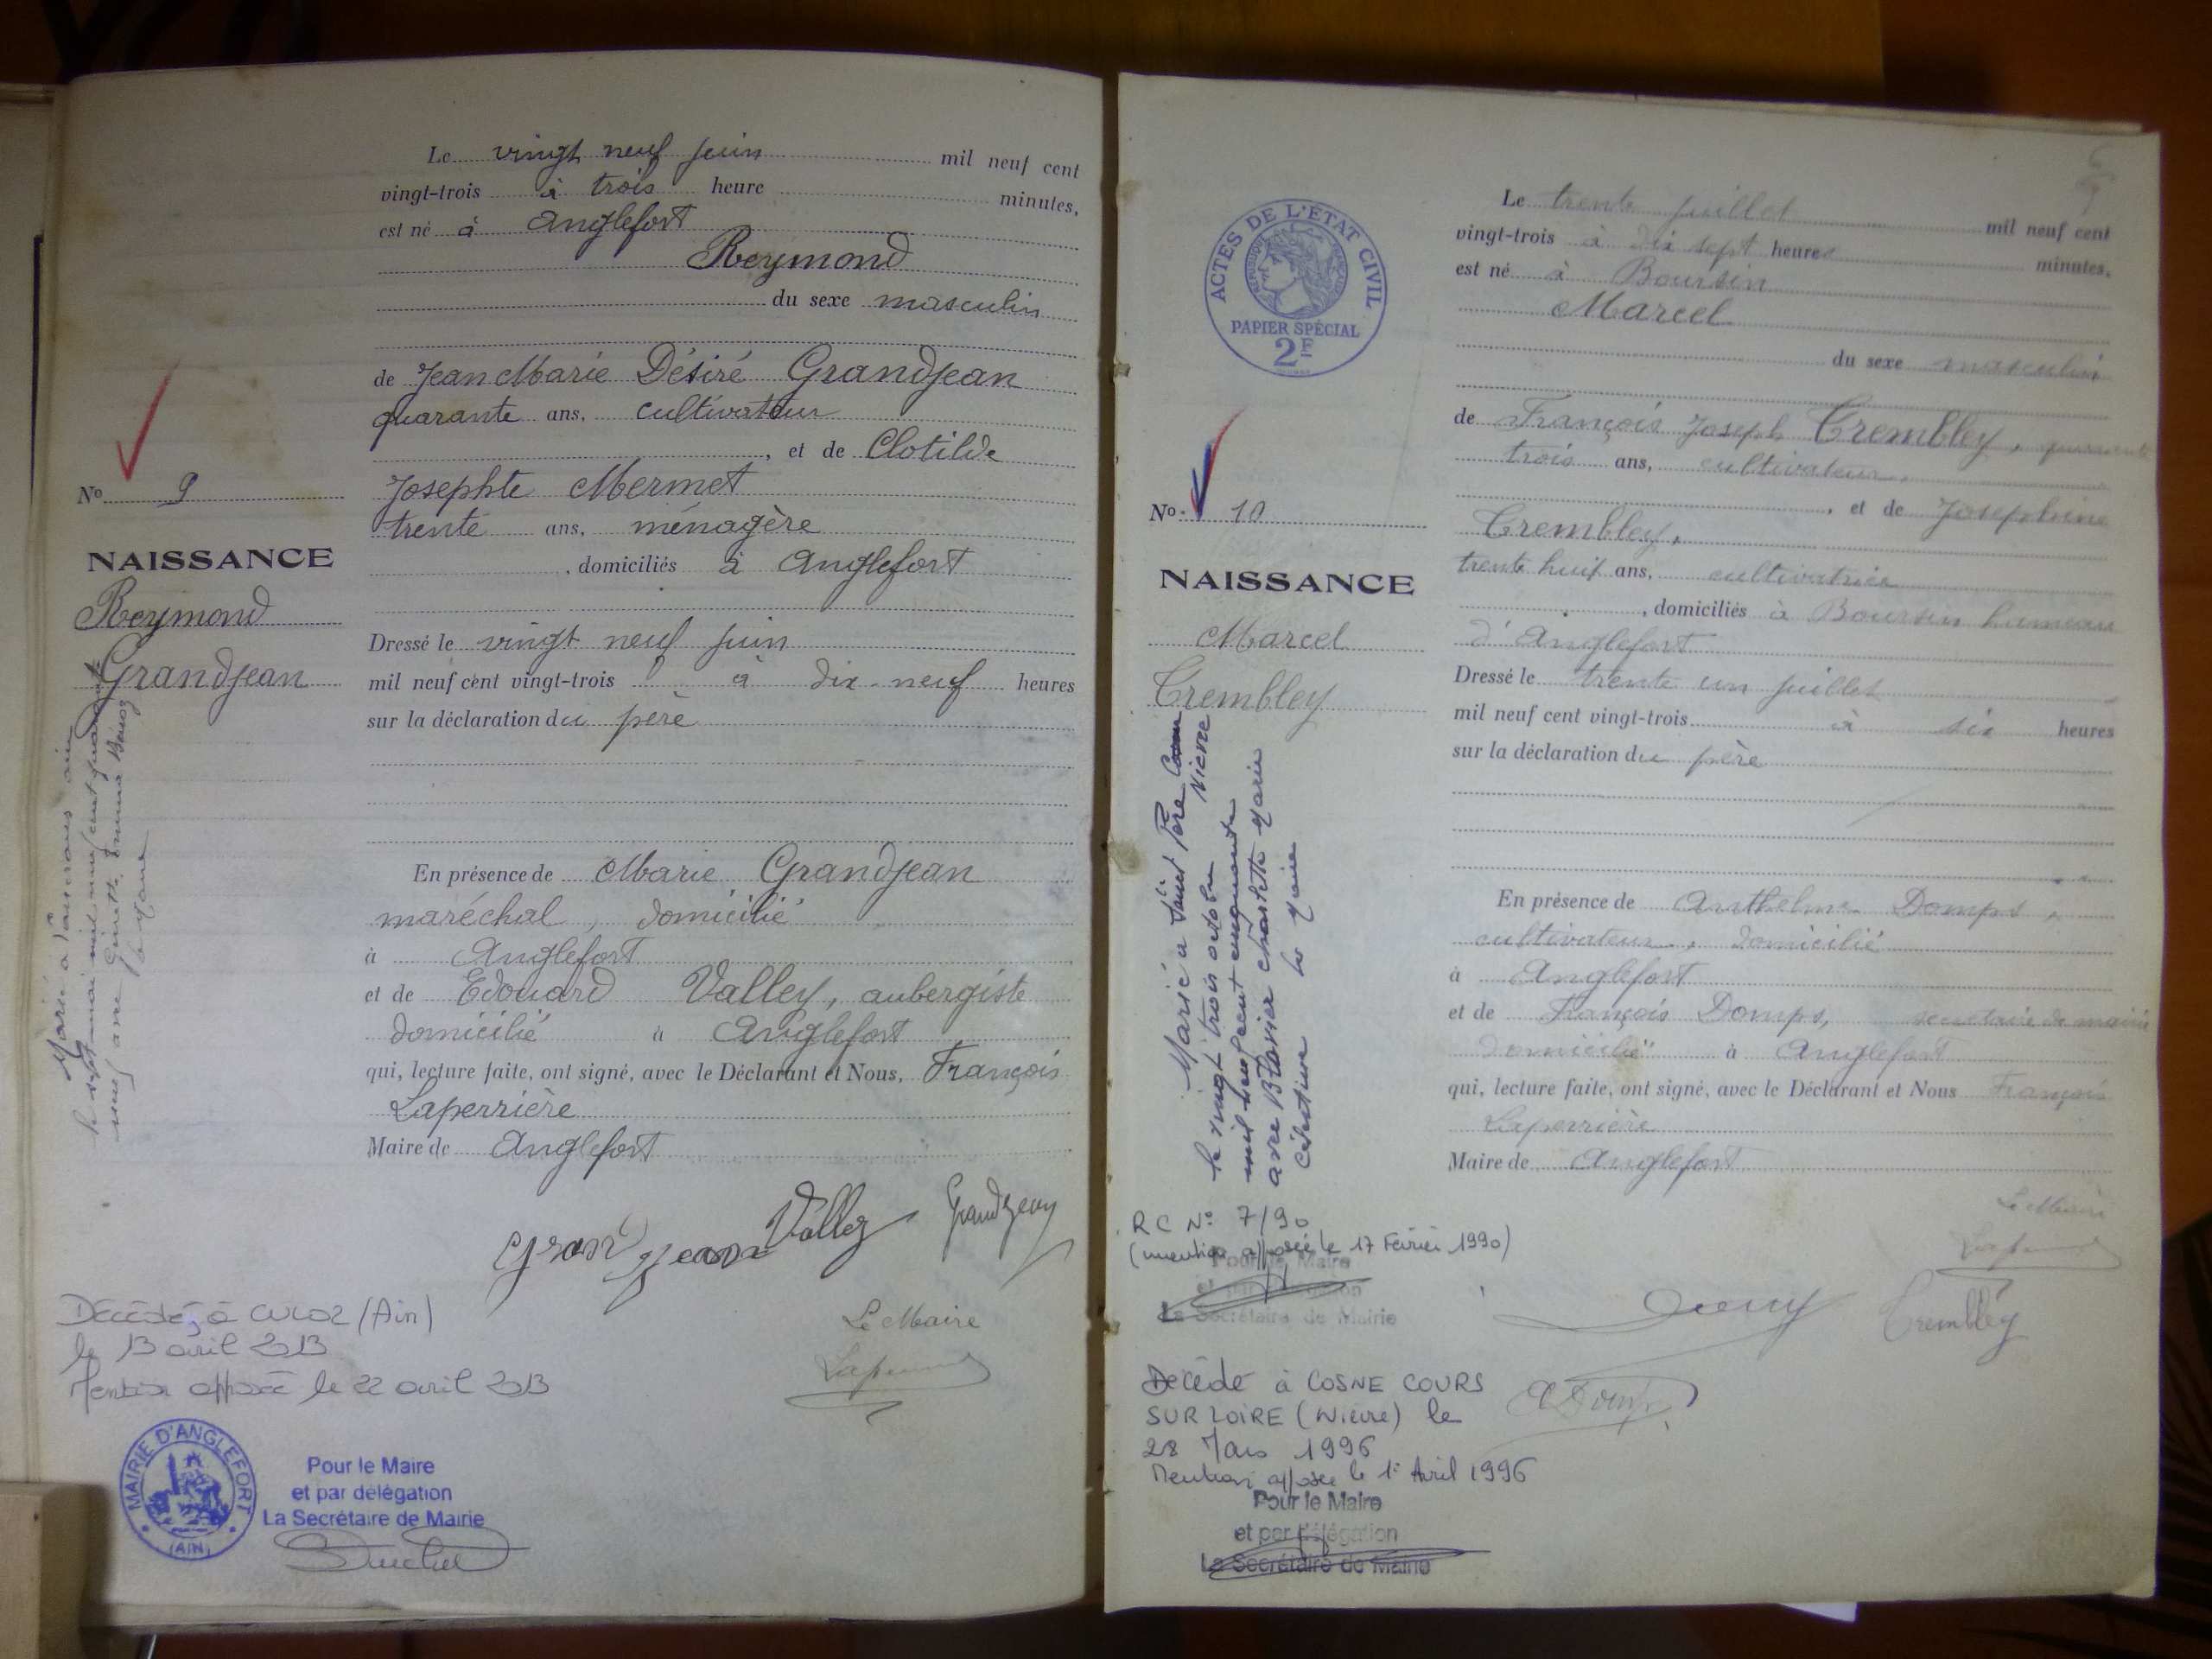 Le vingt neuf juin mil neuf cent
vingt-trois à trois heure minutes,
est né à Anglefort
Reymond
du sexe masculin
de Jean Marie Désiré Grandjean
quarante ans, cultivateur
, et de Clotilde
Josephte Mermet
trente ans, ménagère
, domiciliés à Anglefort
Dressé le vingt neuf juin
mil neuf cent vingt-trois à dix-neuf heures
sur la déclaration du père
En présence de Marie Grandjean
maréchal, domicilié
à Anglefort
et de Edouard Valley, aubergiste
domicilié à Anglefort
qui, lecture faite, ont signé, avec le Déclarant et Nous, François
Laperrière
Maire de Anglefort
Grandjean Valley Grandjean
Le Maire
No 9
NAISSANCE
Reymond
Grandjean
Marié à
le sept mai mil neuf cent quarante
neuf avec Ginette
le Maire
Décédé à CULOZ (Ain)
le 13 avril 2013
Mention apposée le 22 avril 2013
MAIRIE D'ANGLEFORT
(AIN)
Pour le Maire
et par délégation
La Secrétaire de Mairie
ACTES DE L'ÉTAT CIVIL
PAPIER SPÉCIAL
2F
Le trente juillet mil neuf cent
vingt-trois à dix sept heures minutes,
est né à Boursin
Marcel
du sexe masculin
de François Joseph Trembley, quarante
trois ans, cultivateur,
, et de Josephine
Trembley,
trente huit ans, cultivatrice
, domiciliés à Boursin hameau
d'Anglefort
Dressé le trente un juillet
mil neuf cent vingt-trois à six heures
sur la déclaration du père
En présence de Anthelme Domps,
cultivateur, domicilié
à Anglefort
et de François Domps, secrétaire de mairie
domicilié à Anglefort
qui, lecture faite, ont signé, avec le Déclarant et Nous François
Laperrière
Maire de Anglefort
Le Maire
Trembley
No 10
NAISSANCE
Marcel
Trembley
Marié à Saint Père
Nièvre
le vingt trois octobre
mil neuf cent cinquante
avec Blavier Charlotte Marie
Célestine le Maire
RC No 7/90
(mention apposée le 17 Février 1990)
Pour le Maire
et par délégation
La Secrétaire de Mairie
Décédé à COSNE COURS
SUR LOIRE (Nièvre) le
28 Mars 1996
Mention apposée le 1er Avril 1996
Pour le Maire
et par délégation
La Secrétaire de Mairie